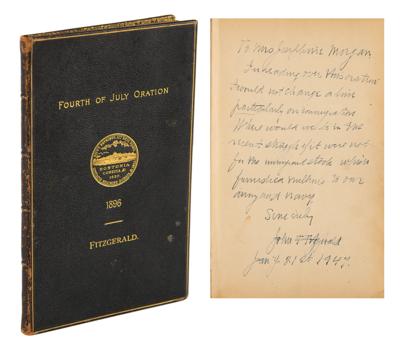 FOURTH OF JULY ORATION
BOSTONIA
CONDITA A.D.
1630.
1896
FITZGERALD.
To Mrs Morgan
In reading over this oration
I would not change a line
particularly on immigration
Where would we be in the
recent struggle if it were not
for the immigrant stock which
furnished millions to our
army and navy
Sincerely
John F Fitzgerald
Jan'y 31st 1947.